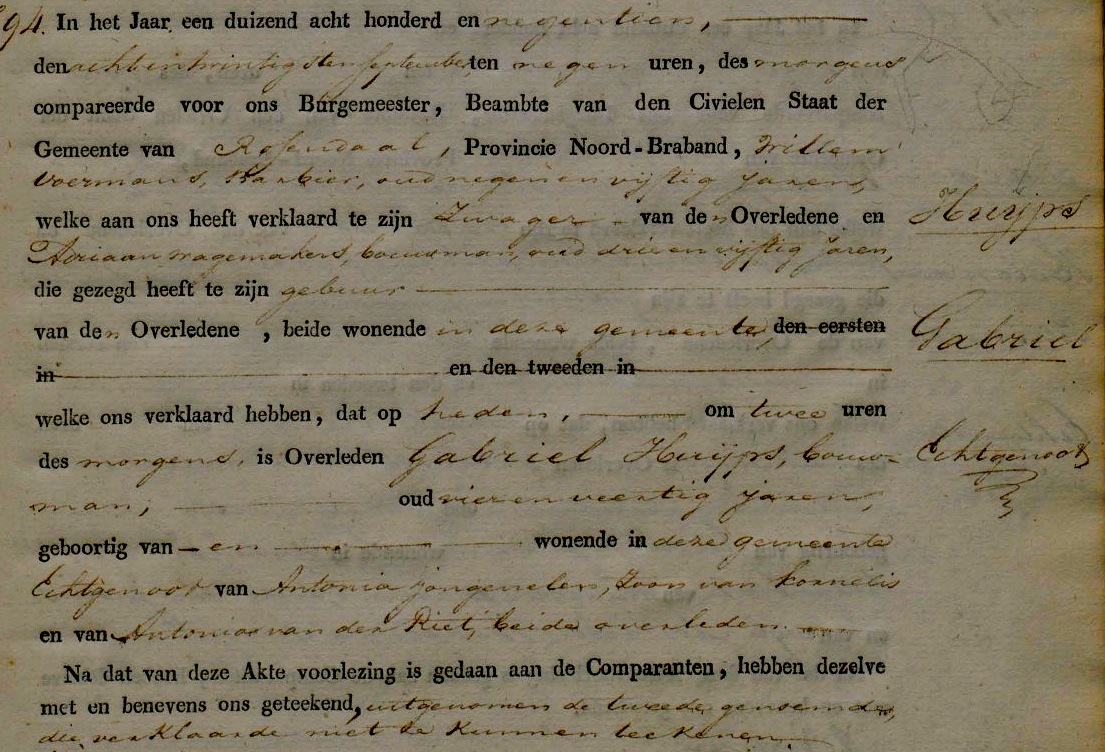 94. In het Jaar een duizend acht honderd en negentien,
den achtentwintigsten september ten negen uren, des morgens
compareerde voor ons Burgemeester, Beambte van den Civielen Staat der
Gemeente van Rosendaal, Provincie Noord-Braband, Willem
Voermans, Barbier, oud negenenvijftig jaren,
welke aan ons heeft verklaard te zijn Zwager van den Overledene en
Huijps
Adriaan wagemakers, bouwman, oud drieenvijftig jaren,
die gezegd heeft te zijn gebuur
van den Overledene, beide wonende in deze gemeente, den eersten
Gabriel
in en den tweeden in
welke ons verklaard hebben, dat op heden, om twee uren
des morgens, is Overleden Gabriel Huijps, bouw-
Echtgenoot
man, oud vierenveertig jaren,
geboortig van en wonende in deze gemeente
Echtgenoot van Antonia jongenelen, Zoon van kornelis
en van Antonia van der Riet, beide overleden.
Na dat van deze Akte voorlezing is gedaan aan de Comparanten, hebben dezelve
met en benevens ons geteekend, uitgenomen de tweede genoemde,
die verklaarde niet te kunnen teekenen.